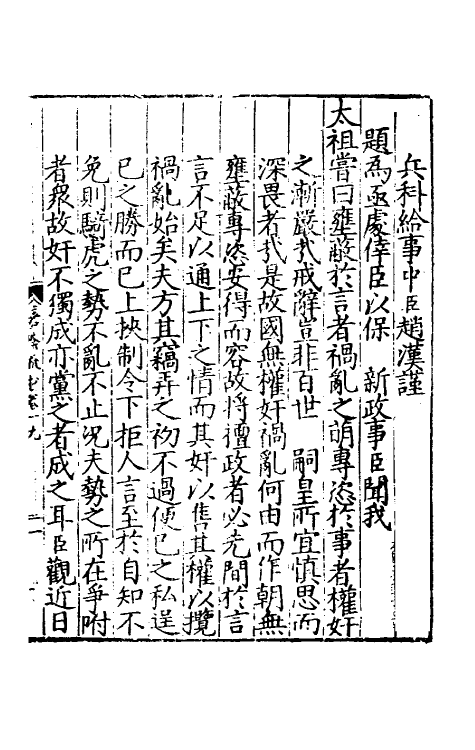 兵科給事中臣趙漢謹
題為亟處倖臣以保　新政事臣聞我
太祖嘗曰壅蔽於言者禍亂之萌專恣於事者權奸
之漸嚴哉戒辭豈非百世　嗣皇所宜慎思而
深畏者哉是故國無權奸禍亂何由而作朝無
壅蔽專恣安得而容故將擅政者必先間於言
言不足以通上下之情而其奸以售其權以攬
禍亂始矣夫方其竊弄之初不過便已之私逞
已之勝而已上挾制令下拒人言至於自知不
免則騎虎之勢不亂不止況夫勢之所在爭附
者衆故奸不獨成亦黨之者成之耳臣觀近日